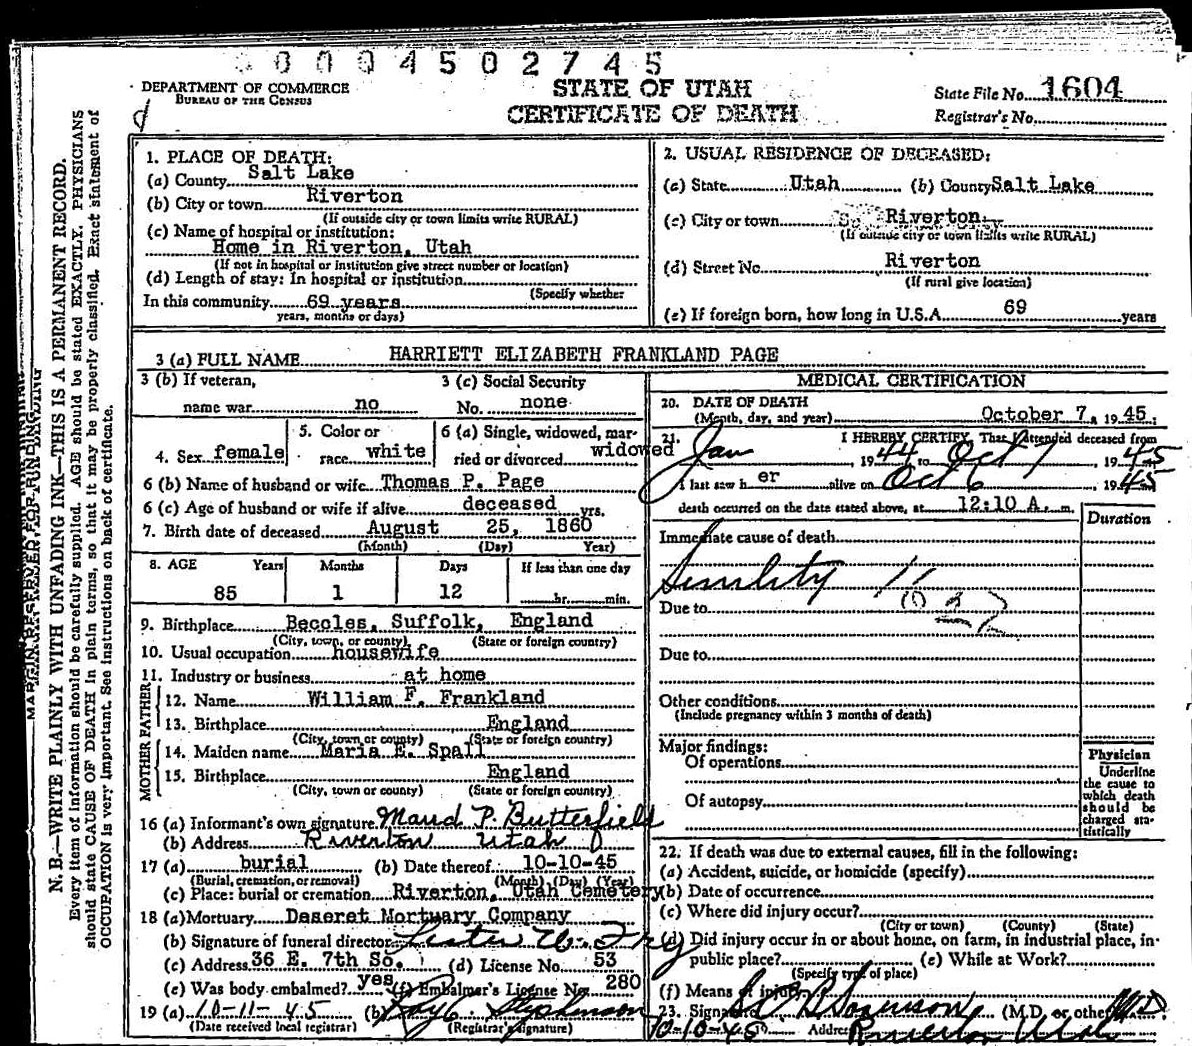 0004502745
DEPARTMENT OF COMMERCE
BUREAU OF THE CENSUS
STATE OF UTAH
CERTIFICATE OF DEATH
State File No. 1604
Registrar's No.
N. B.—WRITE PLAINLY WITH UNFADING INK—THIS IS A PERMANENT RECORD.
Every item of information should be carefully supplied. AGE should be stated EXACTLY. PHYSICIANS
should state CAUSE OF DEATH in plain terms, so that it may be properly classified. Exact statement of
OCCUPATION is very important. See instructions on back of certificate.
1. PLACE OF DEATH:
(a) County Salt Lake
(b) City or town Riverton
(If outside city or town limits write RURAL)
(c) Name of hospital or institution:
Home in Riverton, Utah
(If not in hospital or institution give street number or location)
(d) Length of stay: In hospital or institution
(Specify whether
In this community 69 years
years, months or days)
2. USUAL RESIDENCE OF DECEASED:
(a) State Utah (b) County Salt Lake
(c) City or town Riverton
(If outside city or town limits write RURAL)
(d) Street No. Riverton
(If rural give location)
(e) If foreign born, how long in U.S.A. 69 years
3 (a) FULL NAME HARRIETT ELIZABETH FRANKLAND PAGE
3 (b) If veteran, name war no
3 (c) Social Security No. none
4. Sex female
5. Color or race white
6 (a) Single, widowed, married or divorced widowed
6 (b) Name of husband or wife Thomas P. Page
6 (c) Age of husband or wife if alive deceased yrs.
7. Birth date of deceased August 25, 1860
(Month) (Day) (Year)
8. AGE Years Months Days If less than one day
85 1 12 hr. min.
9. Birthplace Beccles, Suffolk, England
(City, town, or county) (State or foreign country)
10. Usual occupation housewife
11. Industry or business at home
FATHER
12. Name William F. Frankland
13. Birthplace England
(City, town or county) (State or foreign country)
MOTHER
14. Maiden name Maria E. Spall
15. Birthplace England
(City, town or county) (State or foreign country)
16 (a) Informant's own signature Maud P. Butterfield
(b) Address Riverton Utah
17 (a) burial (b) Date thereof 10-10-45
(Burial, cremation, or removal) (Month) (Day) (Year)
(c) Place: burial or cremation Riverton, Utah Cemetery
18 (a) Mortuary Deseret Mortuary Company
(b) Signature of funeral director
(c) Address 36 E. 7th So. (d) License No. 53
(e) Was body embalmed? yes (f) Embalmer's License No. 280
19 (a) 10-11-45 (b) Stephenson
(Date received local registrar) (Registrar's signature)
MEDICAL CERTIFICATION
20. DATE OF DEATH
(Month, day, and year) October 7, 1945.
21. I HEREBY CERTIFY, That I attended deceased from
Jan, 1944 to Oct 7, 1945
I last saw h er alive on Oct 6, 1945
death occurred on the date stated above, at 12:10 A. m.
Duration
Immediate cause of death
Senility
Due to
Due to
Other conditions
(Include pregnancy within 3 months of death)
Major findings:
Of operations
Of autopsy
Physician
Underline
the cause to
which death
should be
charged sta-
tistically
22. If death was due to external causes, fill in the following:
(a) Accident, suicide, or homicide (specify)
(b) Date of occurrence
(c) Where did injury occur?
(City or town) (County) (State)
(d) Did injury occur in or about home, on farm, in industrial place, in-
public place? (e) While at Work?
(Specify type of place)
(f) Means of injury
23. Signature Sorenson (M.D. or other) M.D.
10-10-45 Address Riverton Utah